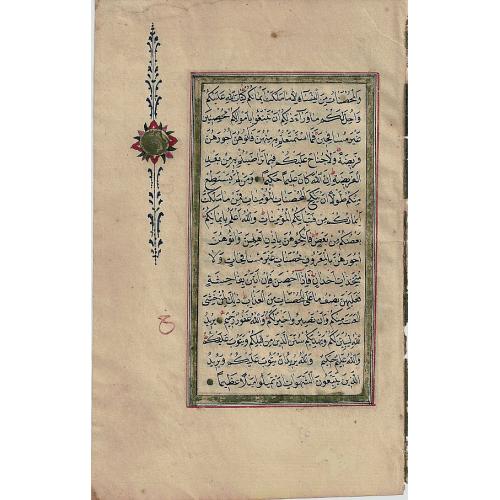 والمحصنات من النساء الا ما ملكت ايمانكم كتاب الله عليكم
واحل لكم ما ورآء ذلكم ان تبتغوا باموالكم محصنين
غير مسافحين فما استمتعتم به منهن فاتوهن اجورهن
فريضة ولا جناح عليكم فيما تراضيتم به من بعد
الفريضة ان الله كان عليما حكيما ومن لم يستطع
منكم طولا ان ينكح المحصنات المؤمنات فمن ما ملكت
ايمانكم من فتياتكم المؤمنات والله اعلم بايمانكم
بعضكم من بعض فانكحوهن باذن اهلهن واتوهن
اجورهن بالمعروف محصنات غير مسافحات ولا
متخذات اخدان فاذا احصن فان اتين بفاحشة
فعليهن نصف ما على المحصنات من العذاب ذلك لمن خشي
العنت منكم وان تصبروا خير لكم والله غفور رحيم يريد
الله ليبين لكم ويهديكم سنن الذين من قبلكم ويتوب عليكم
والله عليم حكيم والله يريد ان يتوب عليكم ويريد
الذين يتبعون الشهوات ان تميلوا ميلا عظيما